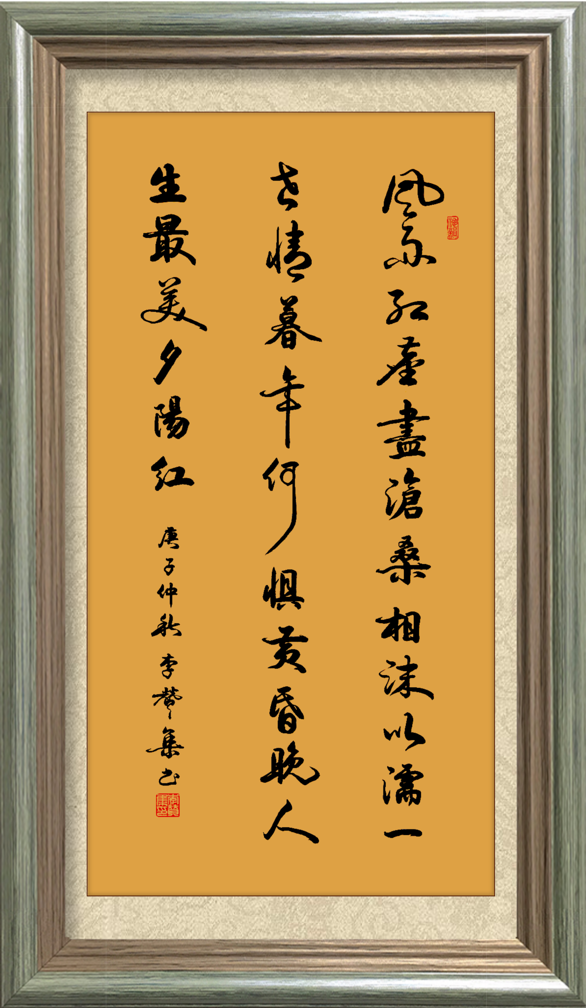 風雨紅塵盡滄桑相沫以濡一
世情暮年何惧黄昏晚人
生最美夕陽紅
庚子仲秋 李 集书